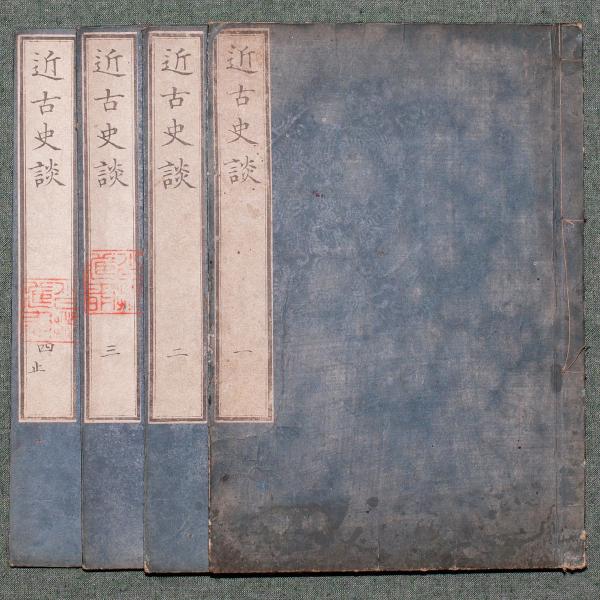 近古史談
一
近古史談
二
近古史談
三
近古史談
四止